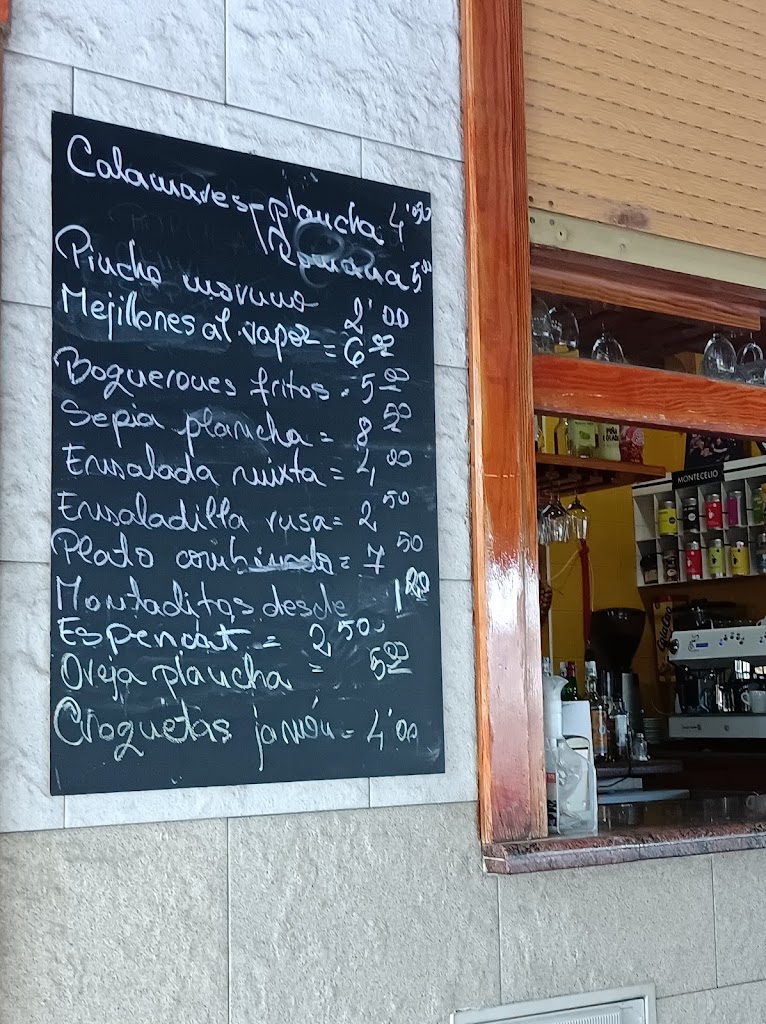 Calamares-plancha 4'00
Romana 5'00
Pincho moruno 2'00
Mejillones al vapor = 6'00
Boquerones fritos = 5'00
Sepia plancha = 8'50
Ensalada mixta = 4'00
Ensaladilla rusa = 2'50
Plato combinado = 7'50
Montaditos desde 1'80
Espencat = 2'50
Oreja plancha = 5'00
Croquetas jamón = 4'00
MONTECELIO